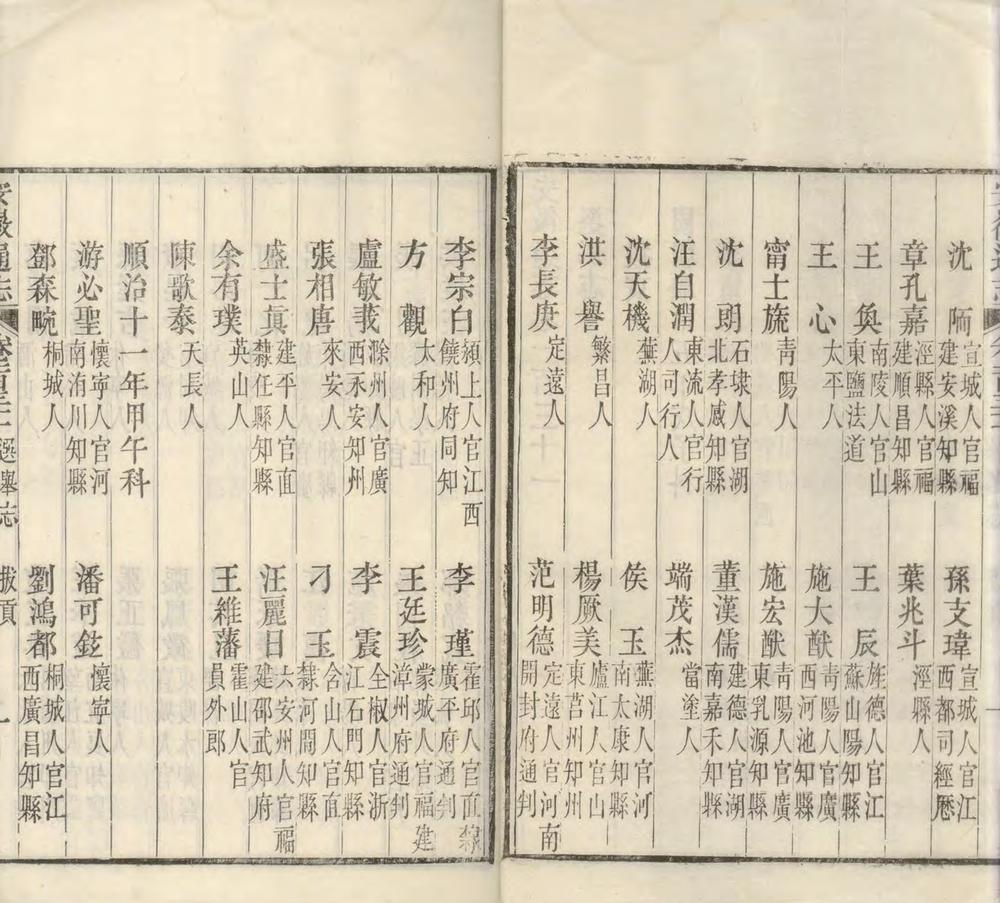 沈㫤 宣城人官福建安溪知縣 孫支瑋 宣城人官江西都司經歷
章孔嘉 涇縣人官福建順昌知縣 葉兆斗 涇縣人
王奐 南陵人官山東鹽法道 王辰 旌德人官江蘇山陽知縣
王心 太平人 施大猷 靑陽人官廣西河池知縣
甯士旒 靑陽人 施宏猷 靑陽人官廣東乳源知縣
沈明 石埭人官湖北孝感知縣 董漢儒 建德人官湖南嘉禾知縣
汪自潤 東流人官行人司行人 端茂杰 當塗人
沈天機 蕪湖人 侯玉 蕪湖人官河南太康知縣
洪譽 繁昌人 楊厥美 廬江人官山東莒州知州
李長庚 定遠人 范明德 定遠人官河南開封府通判
李宗白 潁上人官江西饒州府同知 李瑾 霍邱人官直隸廣平府通判
方觀 太和人 王廷珍 蒙城人官福建漳州府通判
盧敏莪 滁州人官廣西永安知州 李震 全椒人官浙江石門知縣
張相唐 來安人 刁玉 含山人官直隸河間知縣
盛士眞 建平人官直隸任縣知縣 汪麗日 六安州人官福建邵武知府
余有璞 英山人 王維藩 霍山人官員外郎
陳歌泰 天長人
順治十一年甲午科
游必聖 懷寧人官河南洧川知縣 潘可鉉 懷寧人
鄧森畹 桐城人 劉鴻都 桐城人官江西廣昌知縣
安徽通志 選舉志 拔貢